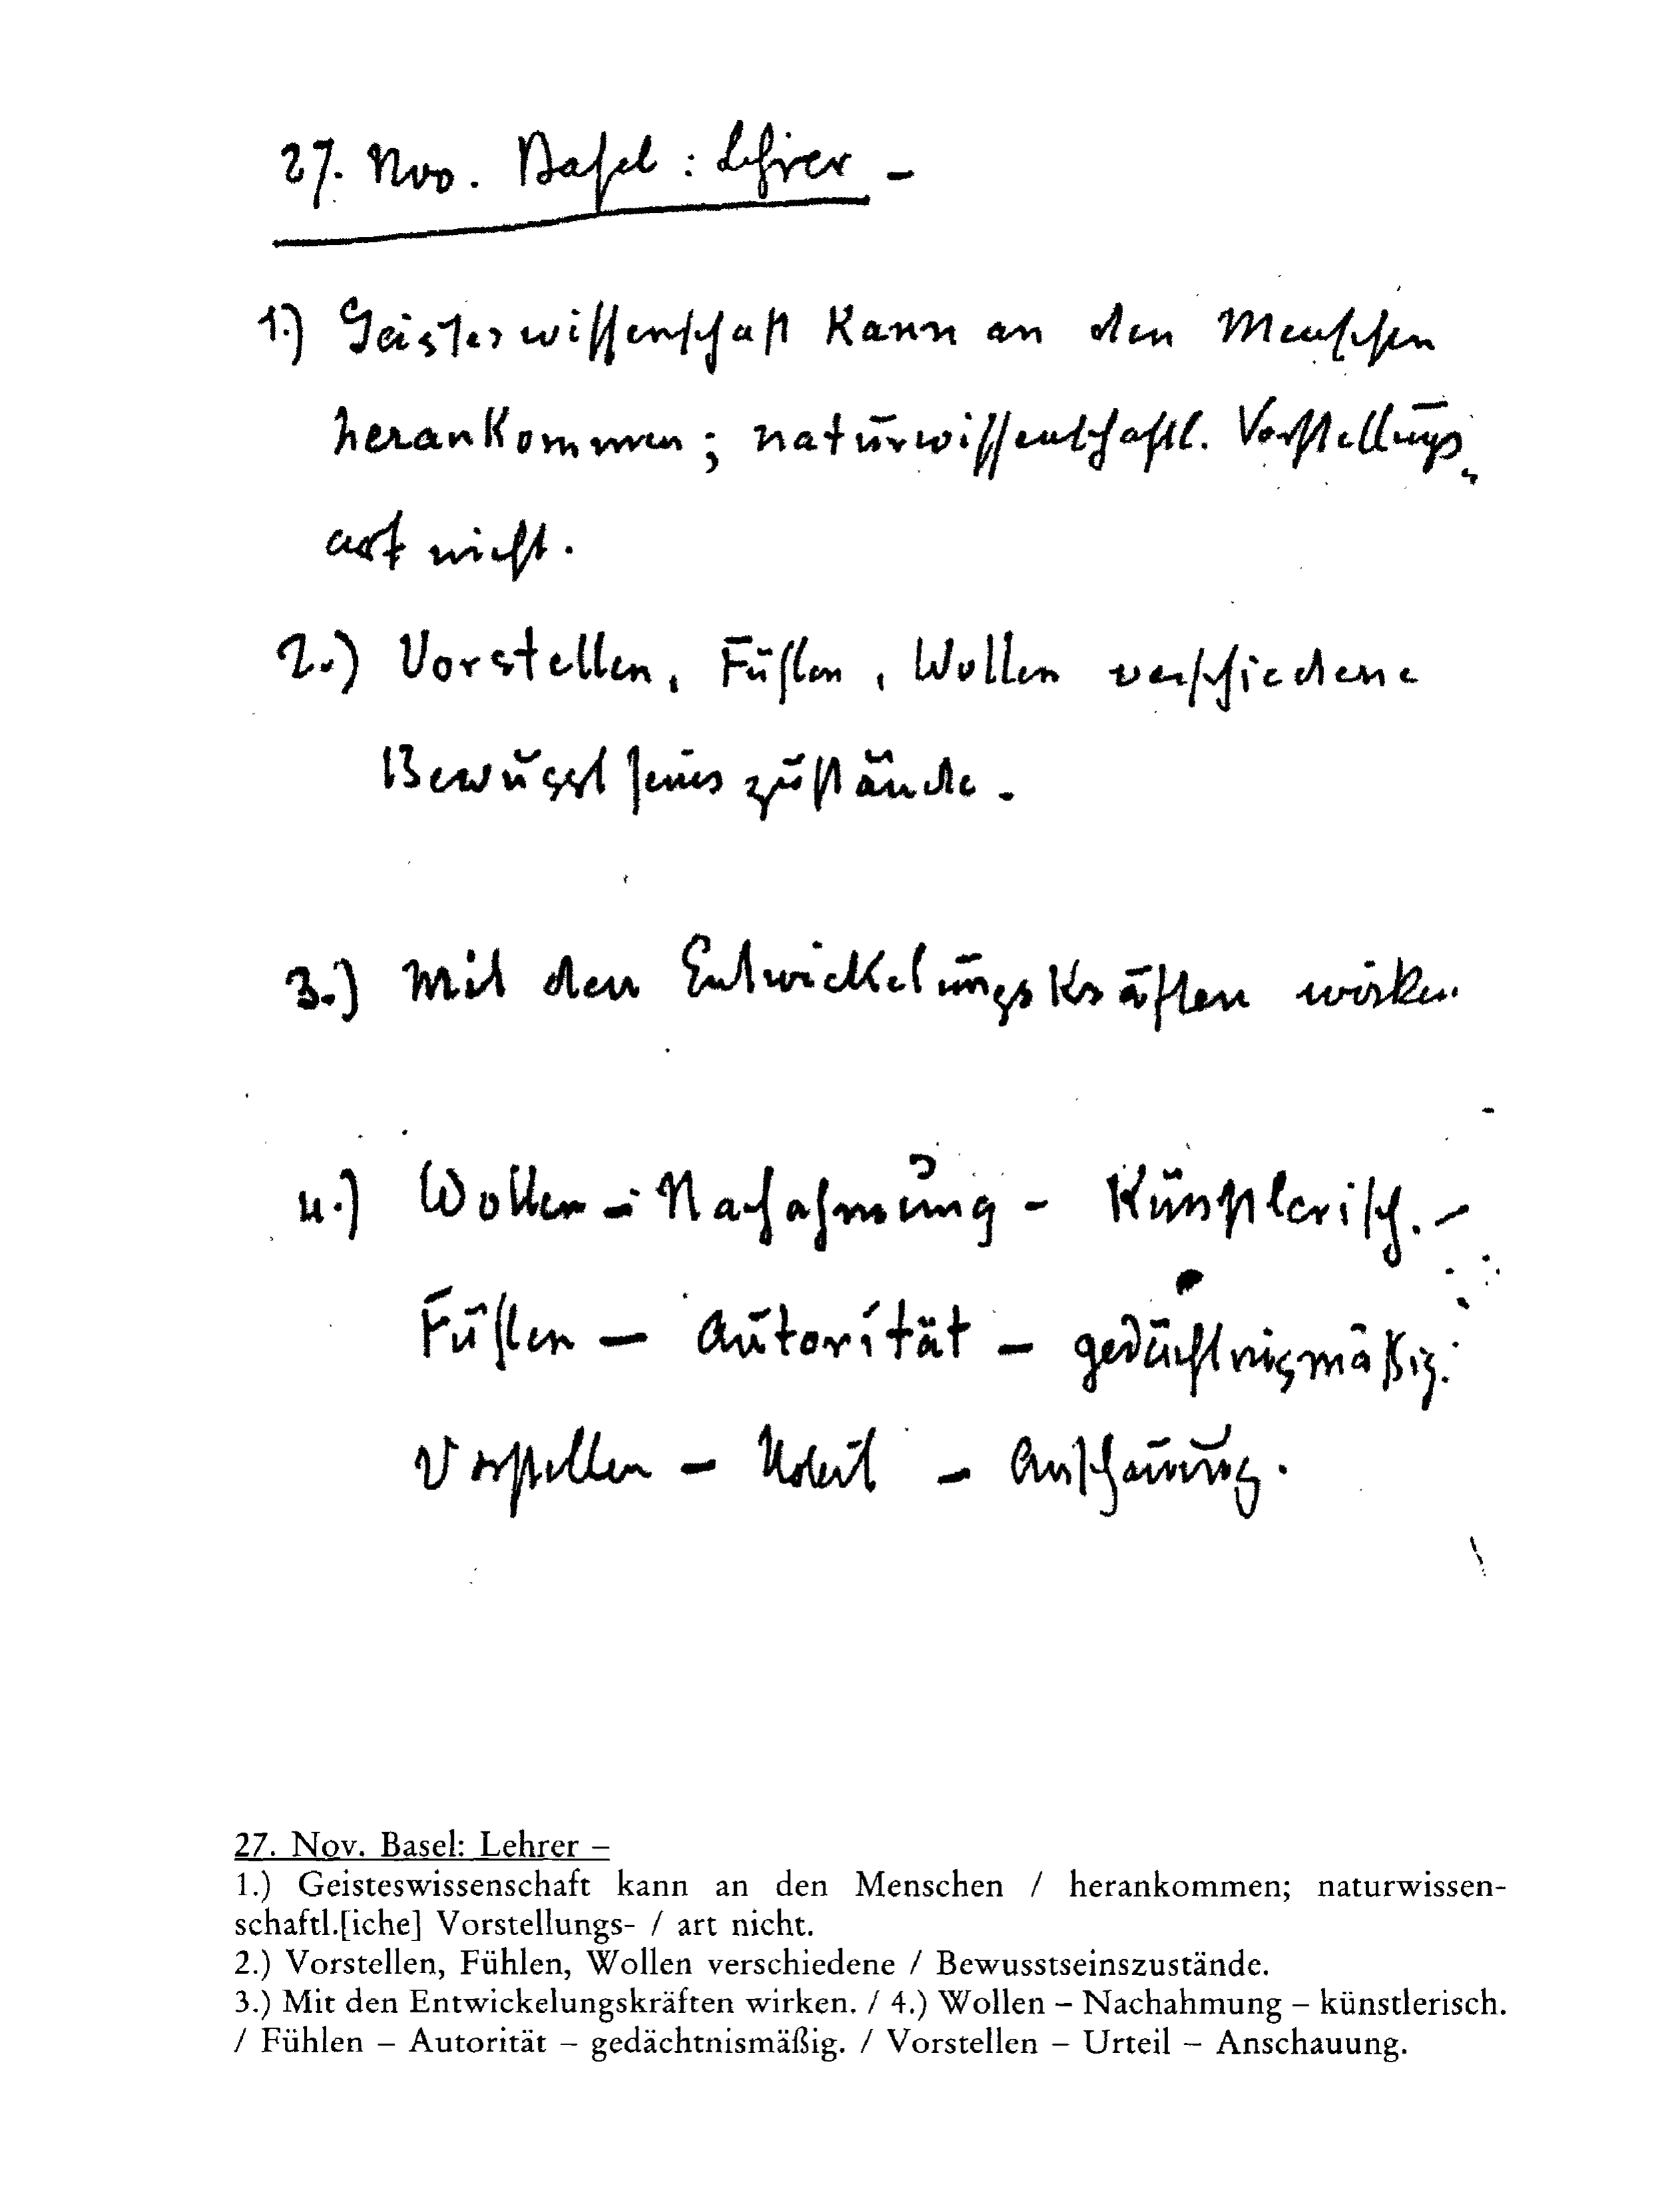 27. Nov. Basel: Lehrer –
1.) Geisteswissenschaft kann an den Menschen
herankommen; naturwissenschaftl. Vorstellungs-
art nicht.
2.) Vorstellen, Fühlen, Wollen verschiedene
Bewusstseinszustände.
3.) Mit den Entwickelungskräften wirken.
4.) Wollen – Nachahmung – Künstlerisch. –
Fühlen – Autorität – gedächtnismäßig.
Vorstellen – Urteil – Anschauung.
27. Nov. Basel: Lehrer –
1.) Geisteswissenschaft kann an den Menschen / herankommen; naturwissen-
schaftl.[iche] Vorstellungs- / art nicht.
2.) Vorstellen, Fühlen, Wollen verschiedene / Bewusstseinszustände.
3.) Mit den Entwickelungskräften wirken. / 4.) Wollen – Nachahmung – künstlerisch.
/ Fühlen – Autorität – gedächtnismäßig. / Vorstellen – Urteil – Anschauung.